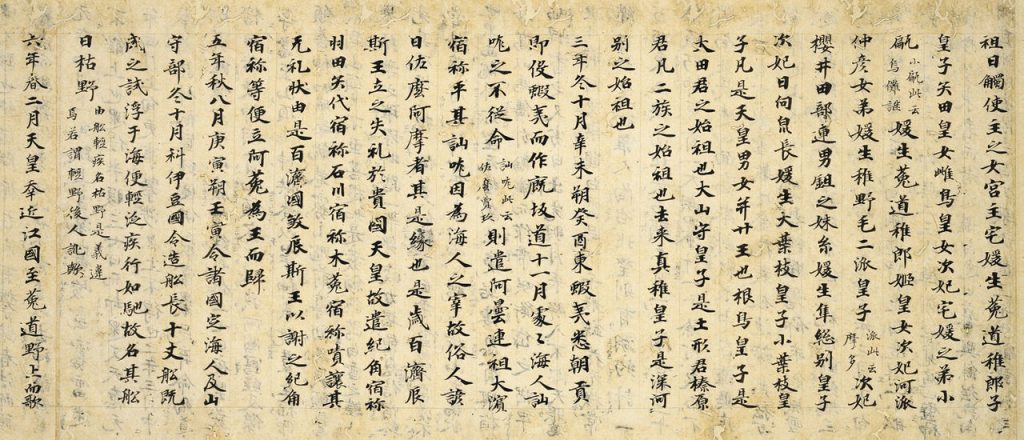 祖日觸使主之女宮主宅媛生菟道稚郎子
皇子矢田皇女雌鳥皇女次妃宅媛之弟小
甂小甂此云烏儺謎媛生菟道稚郎姫皇女次妃河派
仲彦女弟媛生稚野毛二派皇子派此云摩多次妃
櫻井田部連男鉏之妹糸媛生隼総別皇子
次妃日向泉長媛生大葉枝皇子小葉枝皇
子凡是天皇男女并廿王也根鳥皇子是
大田君之始祖也大山守皇子是土形君榛原
君凡二族之始祖也去来真稚皇子是深河
別之始祖也
三年冬十月辛未朔癸酉東蝦夷悉朝貢
即役蝦夷而作厩坂道十一月處〻海人訕
哤之不従命訕哤此云佐麼賣玖則遣阿曇連祖大濱
宿祢平其訕哤因為海人之宰故俗人諺
曰佐麼阿摩者其是縁也是歳百濟辰
斯王立之失礼於貴國天皇故遣紀角宿祢
羽田矢代宿祢石川宿祢木菟宿祢嘖讓其
无礼状由是百濟國殺辰斯王以謝之紀角
宿祢等便立阿菟為王而歸
五年秋八月庚寅朔壬寅令諸國定海人及山
守部冬十月科伊豆國令造舩長十丈舩既
成之試浮于海便輕泛疾行如馳故名其舩
曰枯野由舩輕疾名枯野是義違焉若謂輕野後人訛歟
六年春二月天皇幸近江國至菟道野上而歌